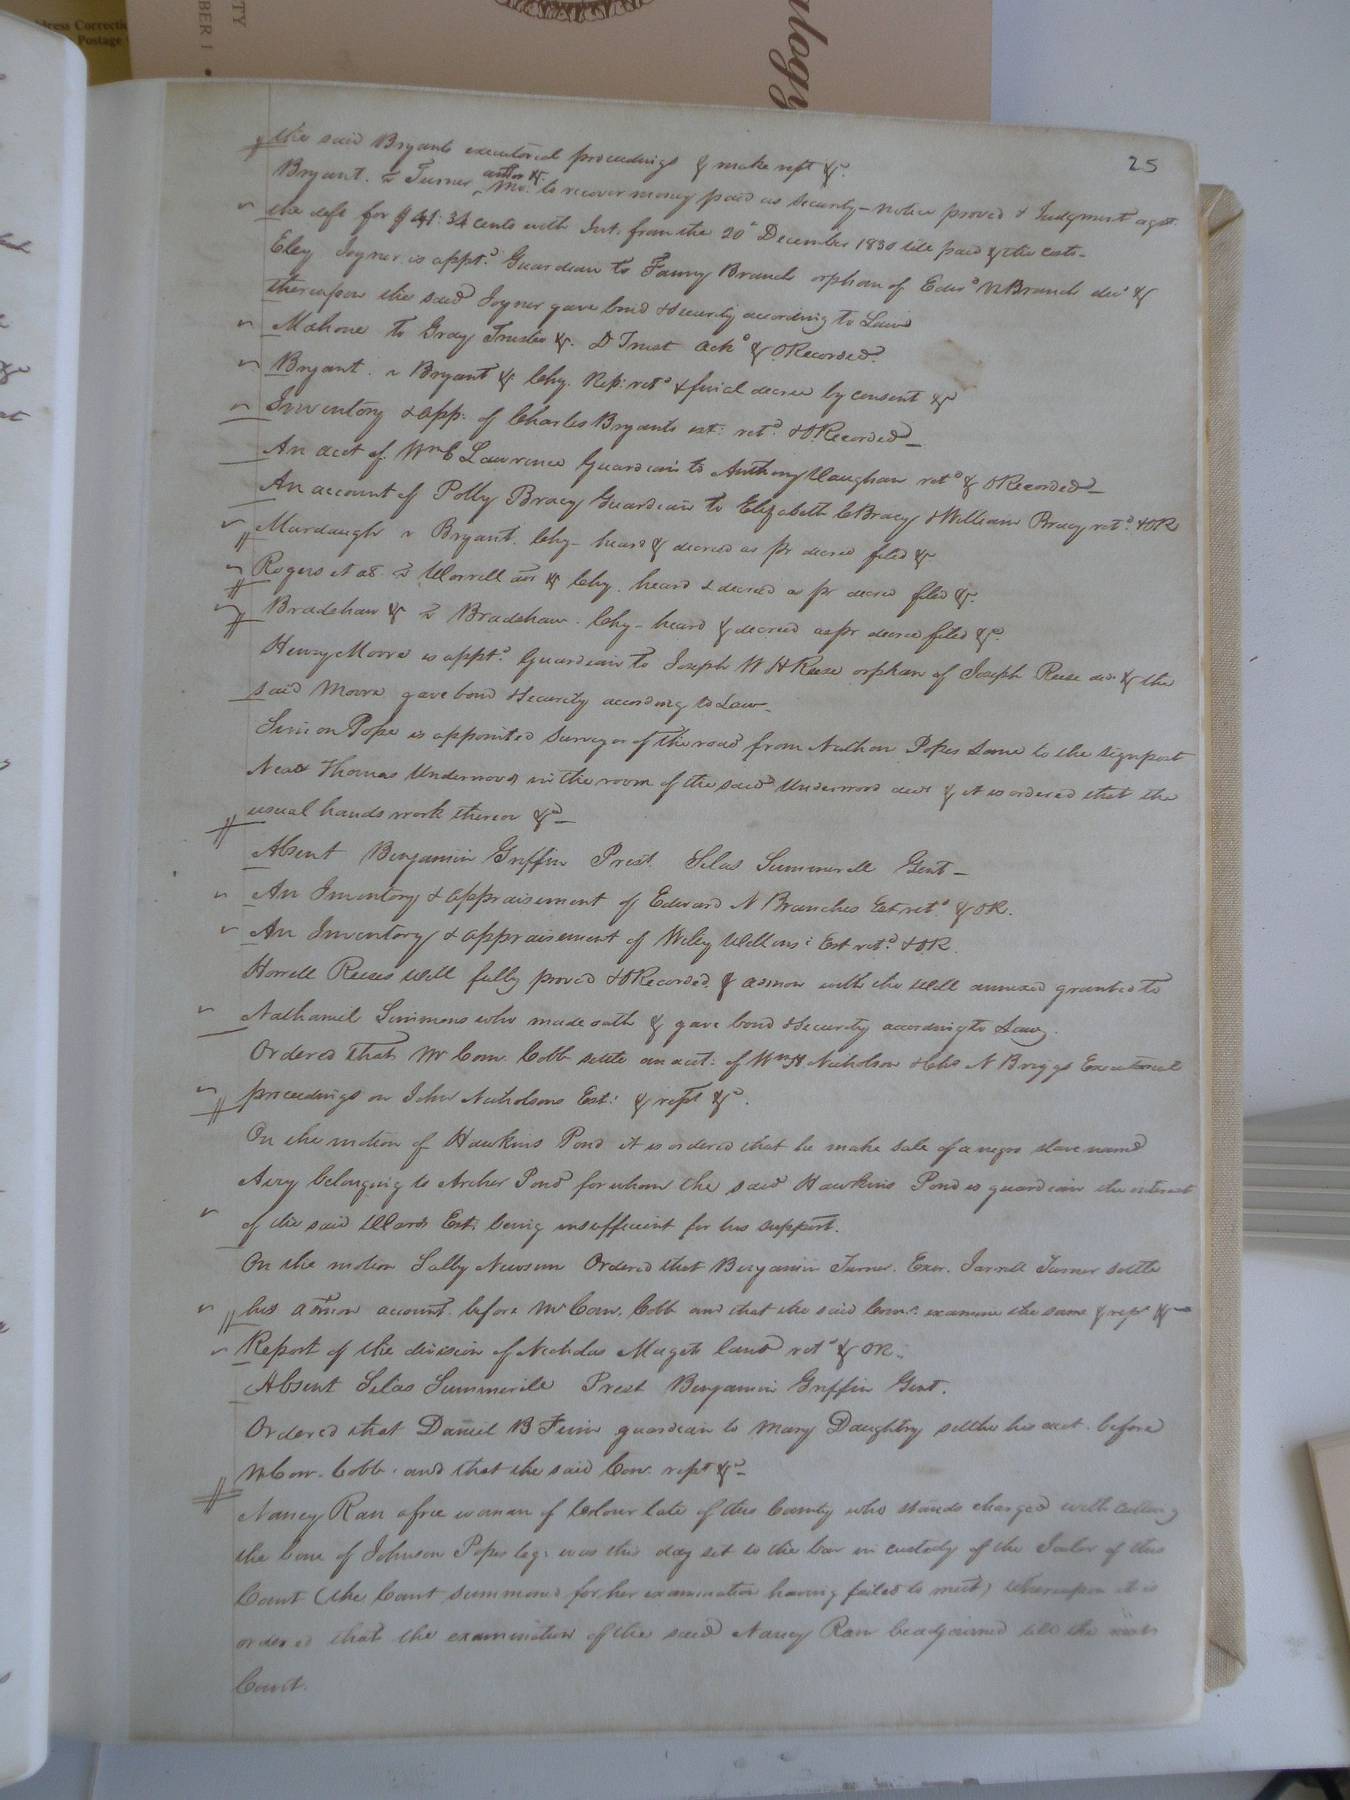 dress Correcti
Postage
TY
BER 1 •
ology
25
the said Bryants executorial proceedings & make rept &c.
Bryant. vs Turner admr &c Mo: to recover money paid as security – notice proved & Judgment agst
the deft for $41:34 cents with Int. from the 20th December 1830 till paid & the costs –
Eley Joyner is apptd Guardian to Fanny Branch orphan of Edwd N Branch decd &
thereupon the said Joyner gave bond & security according to Law
Mahone to Gray Trustee &c. D Trust ackd & O Recorded.
Bryant. v Bryant &c Chy. Rep: retd & final decree by consent &c
Inventory & app: of Charles Bryants est: retd. & O Recorded –
An acct of Wm C Lawrence Guardian to Anthony Vaughan retd & O Recorded –
An account of Polly Bracy Guardian to Elizabeth C Bracy & William Bracy retd. & OR
Murdaugh v Bryant. Chy – heard & decreed as pr decree filed &c
Rogers et als. vs Worrell adr &c Chy. heard & decreed as pr decree filed &c.
Bradshaw &c vs Bradshaw. Chy – heard & decreed as pr decree filed &c.
Henry Moore is apptd. Guardian to Joseph W H Reese orphan of Joseph Reese decd & the
said Moore gave bond & Security according to Law –
Simon Pope is appointed Surveyor of the road from Nathan Popes Lane to the signpost
Near Thomas Underwoods in the room of the said Underwood decd & it is ordered that the
usual hands work thereon &c –
Absent Benjamin Griffin Prest. Silas Summerell Gent –
An Inventory & appraisement of Edward N Branches Est retd & OR.
An Inventory & appraisement of Wiley Wellons: Est retd. & OR.
Howell Reeses Will fully proved & O Recorded & admon with the Will annexed granted to
Nathaniel Simmons who made oath & gave bond & Security according to Law.
Ordered that Mr Com. Cobb settle an acct: of Wm H Nicholson & Chs N Briggs Executorial
proceedings on John Nicholsons Est: & rept &c.
On the motion of Hawkins Pond it is ordered that he make sale of a negro slave named
Avey belonging to Archer Pond for whom the said Hawkins Pond is guardian the interest
of the said Wards Est: being insufficient for his support.
On the motion Sally Newsum Ordered that Benjamin Turner. Exor. Jarrell Turner settle
his admon account. before Mr Com. Cobb and that the said Comr. examine the same & rept &c –
Report of the division of Nicholas Magets land retd & OR.
Absent Silas Summerell Prest Benjamin Griffin Gent.
Ordered that Daniel B guardian to Mary Daughtry settle his acct. before
M Com. Cobb. and that the said Com. rept &c –
Nancy Ran a free woman of Colour late of this County who stands charged with cutting
the of Johnson Popes leg: was this day set to the bar in custody of the Jailor of this
Court (the Court summoned for her examination having failed to meet) Whereupon it is
ordered that the examination of the said Nancy Ran be adjourned till the next
Court.